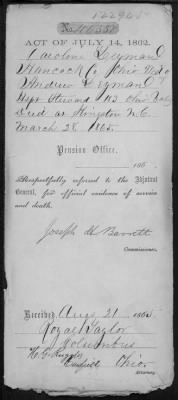 No.
ACT OF JULY 14, 1862.
Caroline Dezmand
Hancock Co Ohio Wid o
Andrew Dezmand
Hspt Steward 183 Ohio
Died at Kingston N.C.
March 28 1865.
Pension Office,
186
Respectfully referred to the Adjutant
General, for official evidence of service
and death.
Joseph H Barrett
Commissioner.
Received Aug 21 1865
Royal Taylor
Columbus
H. G.
Ohio.
Attorney.